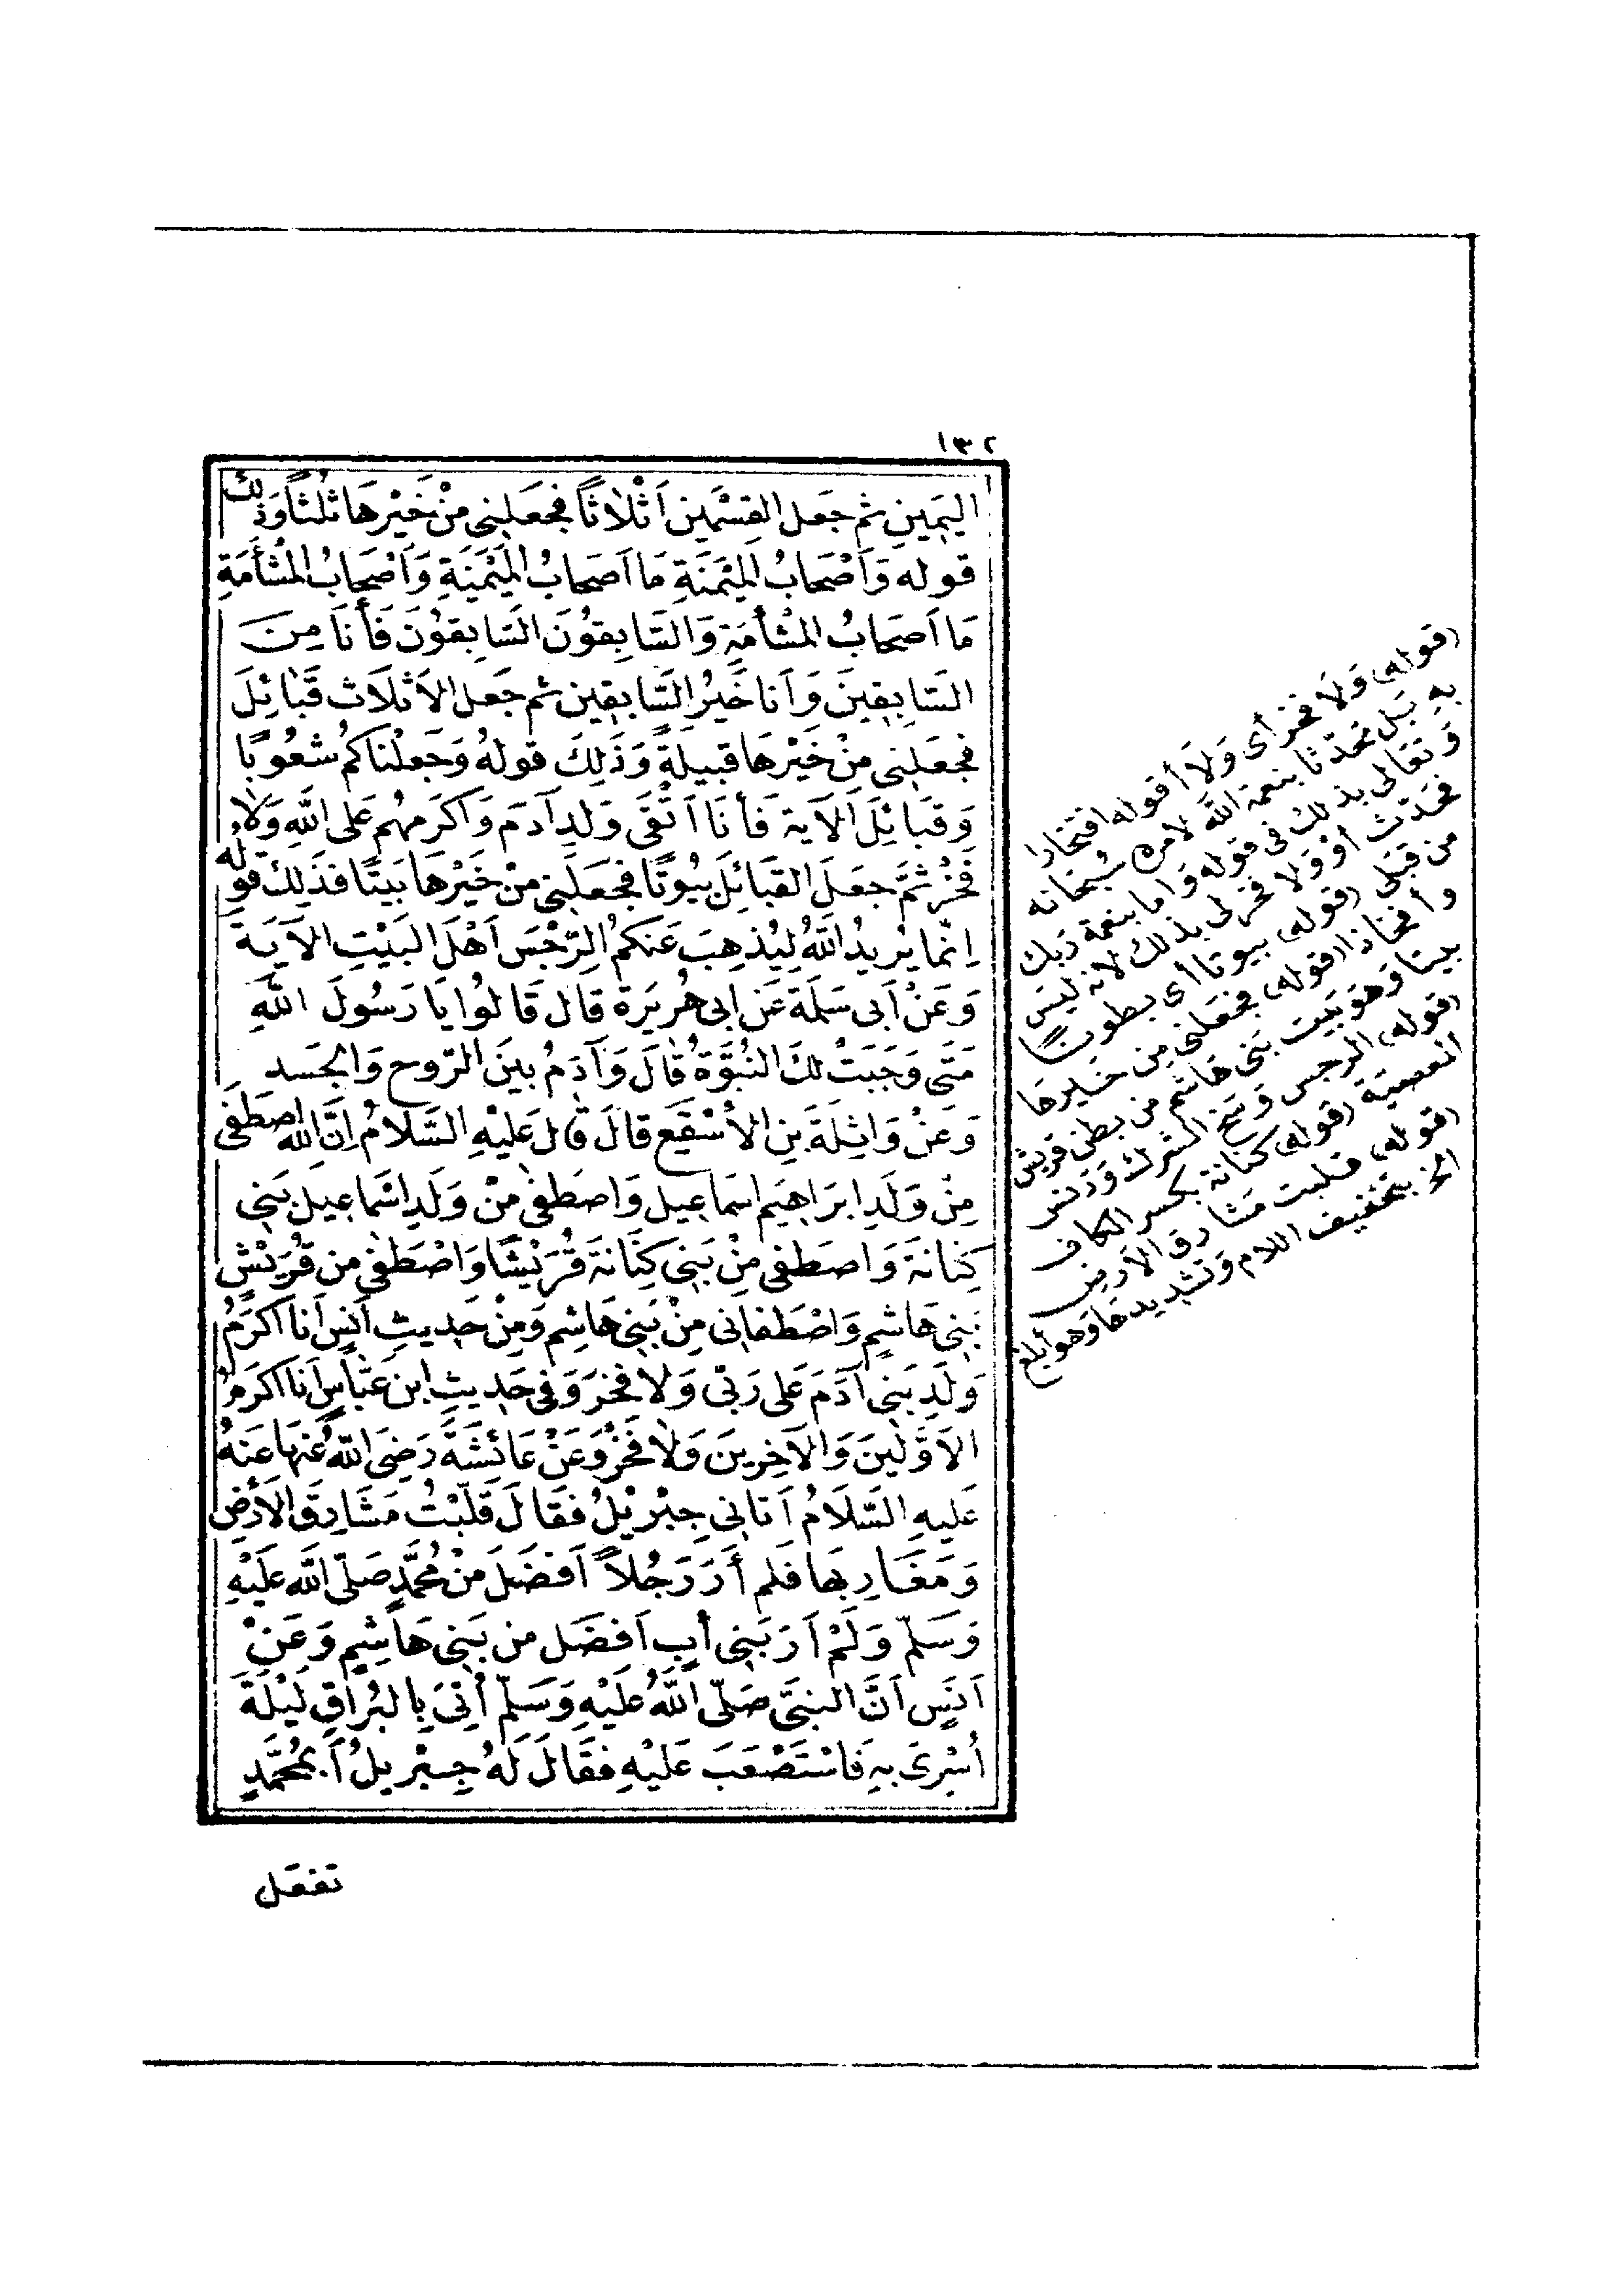 ١٣٢
اليَمِينِ ثم جَعَل القِسْمَين اَثْلاثًا فجَعَلنِى مِنْ خَيْرِهَا ثلثًا وَذلِكَ
قوله وَاَصْحَابُ المَيْمَنَةِ مَا اَصحَابُ المَيْمَنَةِ وَاَصْحَابُ المَشْأَمَةِ
مَا اَصحَابُ المَشْأمَةِ وَالسَّابِقوُنَ السَّابِقوُنَ فَأنَا مِنَ
السَّابِقينَ وَاَنا خَيرُ السَّابِقين ثم جَعَل الاَثلَاث قَبَائِلَ
فجَعَلنِى مِنْ خَيْرِهَا قبيلةً وَذَلِكَ قولهُ وَجَعَلْناكُم شعُوبًا
وَقبَائِلَ الآية فَأنَا اَتْقَى وَلدِ آدَمَ وَاَكرَمهُم عَلى اللهِ وَلاَ
فَخْرَ ثمَّ جعَلَ القبَائِلَ بيُوتًا فجَعَلَنِى مِنْ خَيْرِهَا بَيتًا فذَلِكَ قولُه
اِنّما يُريدُ اللهُ لِيُذهِبَ عَنكمُ الرِّجْسَ اَهْلَ البَيْتِ الآيَةَ
وَعَنْ اَبى سَلَمَة عَن ابى هُرَيرَة قال قَالوُا يَا رَسُولَ اللهِ
مَتَى وَجَبَتْ لكَ النُّبوَّةُ قالَ وَآدَمُ بينَ الرّوح وَالجَسد
وَعَنْ وَاثِلَةَ بنِ الأسْقَعِ قالَ قالَ عَليْهِ السَّلامُ اِنَّ الله اصطَفَى
مِنْ وَلَدِ ابرَاهِيم اسمَاعِيل وَاصطَفى مِنْ وَلَدِ اسْمَاعِيل بَنى
كِنَانَة وَاصطَفى مِنْ بَنِى كِنَانَةَ قُرَيْشًا وَاصْطَفى مِن قُرَيْش
بَنِى هَاشِمٍ وَاصْطَفانِى مِنْ بَنِى هَاشِم وَمِنْ حَدِيثِ اَنسٍ اَنا اَكْرَمُ
وَلَدِ بَنِى آدَمَ عَلى رَبّى وَلا فخرَ وَفى حَدِيثِ ابن عَبَّاسٍ اَنا اَكرَمُ
الاَوَّلينَ وَالآخِرِينَ وَلاَ فَخْرَ وَعَنْ عَائشَةَ رَضِىَ اللهُ عَنهَا عَنهُ
عَليهِ السَّلَامُ اَتانِى جِبْرِيلُ فقَالَ قلّبْتُ مَشَارِقَ الأَرْضِ
وَمَغَارِبهَا فَلم أَرَ رَجُلاً اَفضَلَ مِنْ مُحَمَّدٍ صَلّى الله عَليْهِ
وَسَلّم وَلَمْ اَرَ بَنِى أبٍ اَفضَل مِن بَنِى هَاشِمٍ وَعَنْ
اَنَسٍ اَنَّ النبىَّ صَلّى اللهُ عَليْهِ وَسَلّم اُتِىَ بِالبُراقِ لَيْلَةَ
اُسْرِىَ بهِ فَاسْتَصْعَبَ عَليْهِ فقَالَ لهُ جِبْرِيلُ اَبمُحَمَّدٍ
تفعَل
(قوله وَلا فخر) أى وَلا أقوله افتخارا
به بَل تحدّثا بنعمة الله لامره سُبحانه
وَتعَالى بذلك فى قوله وَاما بنعمة ربك
فحَدّث أو وَلا فخر لى بذلك لانه ليسَ
من قبَلى (قوله بيوتا) أى بطونًا
وأفخاذا (قوله فجعَلنى من خيرها
بيتا) وَهو بَيت بَنى هَاشم من بطن قريش
(قوله الرجس) وَسخ الشرك وَدنس
المعصية (قوله كنانة) بكسر الكاف
(قوله قلبت مشارق الأرض
الخ) بتخفيف اللام وَتشديدها وَهو أبلغ